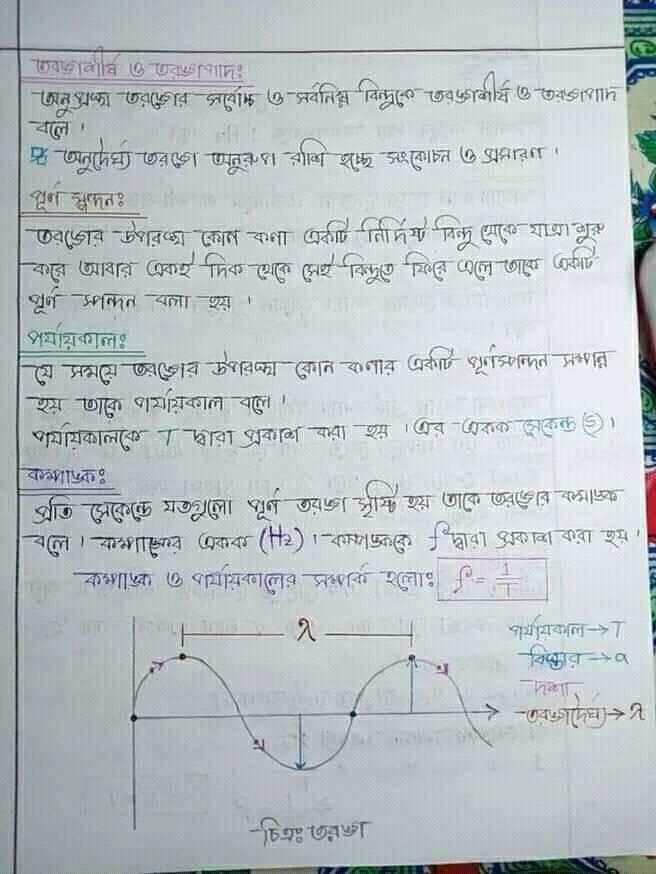 তরঙ্গশীর্ষ ও তরঙ্গপাদঃ
অনুপ্রস্থ তরঙ্গের সর্বোচ্চ ও সর্বনিম্ন বিন্দুকে তরঙ্গশীর্ষ ও তরঙ্গপাদ
বলে।
অনুদৈর্ঘ্য তরঙ্গে অনুরূপ রাশি হচ্ছে সংকোচন ও প্রসারণ।
পূর্ণ স্পন্দনঃ
তরঙ্গের উপরস্থ কোন কণা একটি নির্দিষ্ট বিন্দু থেকে যাত্রা শুরু
করে আবার একই দিক থেকে সেই বিন্দুতে ফিরে এলে তাকে একটি
পূর্ণ স্পন্দন বলা হয়।
পর্যায়কালঃ
যে সময়ে তরঙ্গের উপরস্থ কোন কণার একটি পূর্ণস্পন্দন সম্পন্ন
হয় তাকে পর্যায়কাল বলে।
পর্যায়কালকে T দ্বারা প্রকাশ করা হয়। এর একক সেকেন্ড (s)।
কম্পাঙ্কঃ
প্রতি সেকেন্ডে যতগুলো পূর্ণ তরঙ্গ সৃষ্টি হয় তাকে তরঙ্গের কম্পাঙ্ক
বলে। কম্পাঙ্কের একক (Hz)। কম্পাঙ্ককে f দ্বারা প্রকাশ করা হয়।
কম্পাঙ্ক ও পর্যায়কালের সম্পর্ক হলোঃ f = 1/T
λ
পর্যায়কাল → T
বিস্তার → a
দশা
তরঙ্গদৈর্ঘ্য → λ
চিত্রঃ তরঙ্গ